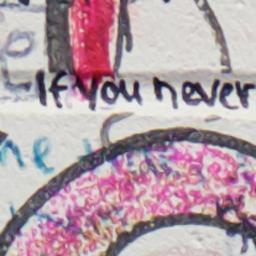 If you never